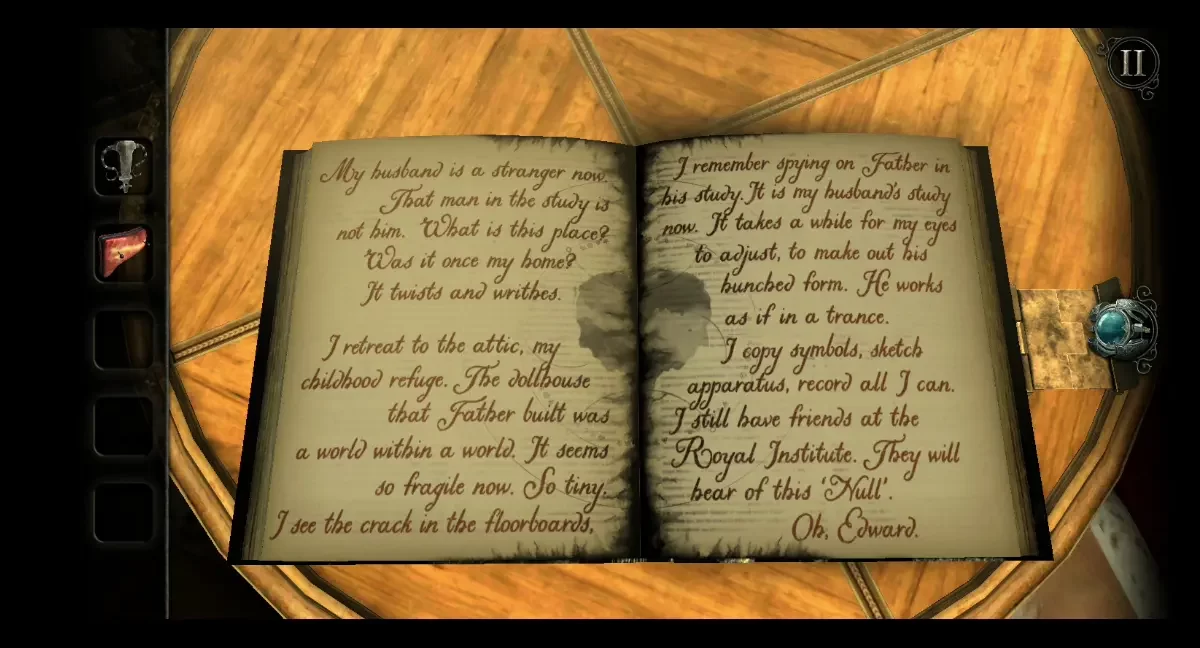 My husband is a stranger now.
That man in the study is
not him. What is this place?
Was it once my home?
It twists and writhes.
I retreat to the attic, my
childhood refuge. The dollhouse
that Father built was
a world within a world. It seems
so fragile now. So tiny.
I see the crack in the floorboards,
I remember spying on Father in
his study. It is my husband's study
now. It takes a while for my eyes
to adjust, to make out his
hunched form. He works
as if in a trance.
I copy symbols, sketch
apparatus, record all I can.
I still have friends at the
Royal Institute. They will
hear of this 'Null'.
Oh, Edward.
II